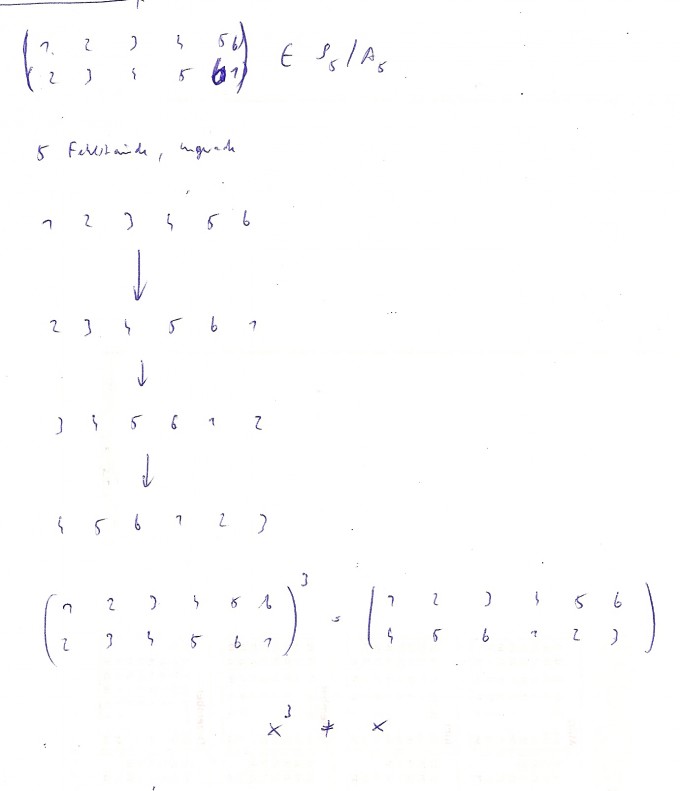 ( 1 2 3 4 5 6 ) ∈ S₅/A₅
( 2 3 4 5 6 1 )
5 Fehlstände, ungerade
1 2 3 4 5 6
↓
2 3 4 5 6 1
↓
3 4 5 6 1 2
↓
4 5 6 1 2 3
( 1 2 3 4 5 6 )³ = ( 1 2 3 4 5 6 )
( 2 3 4 5 6 1 ) ( 4 5 6 1 2 3 )
x³ ≠ x